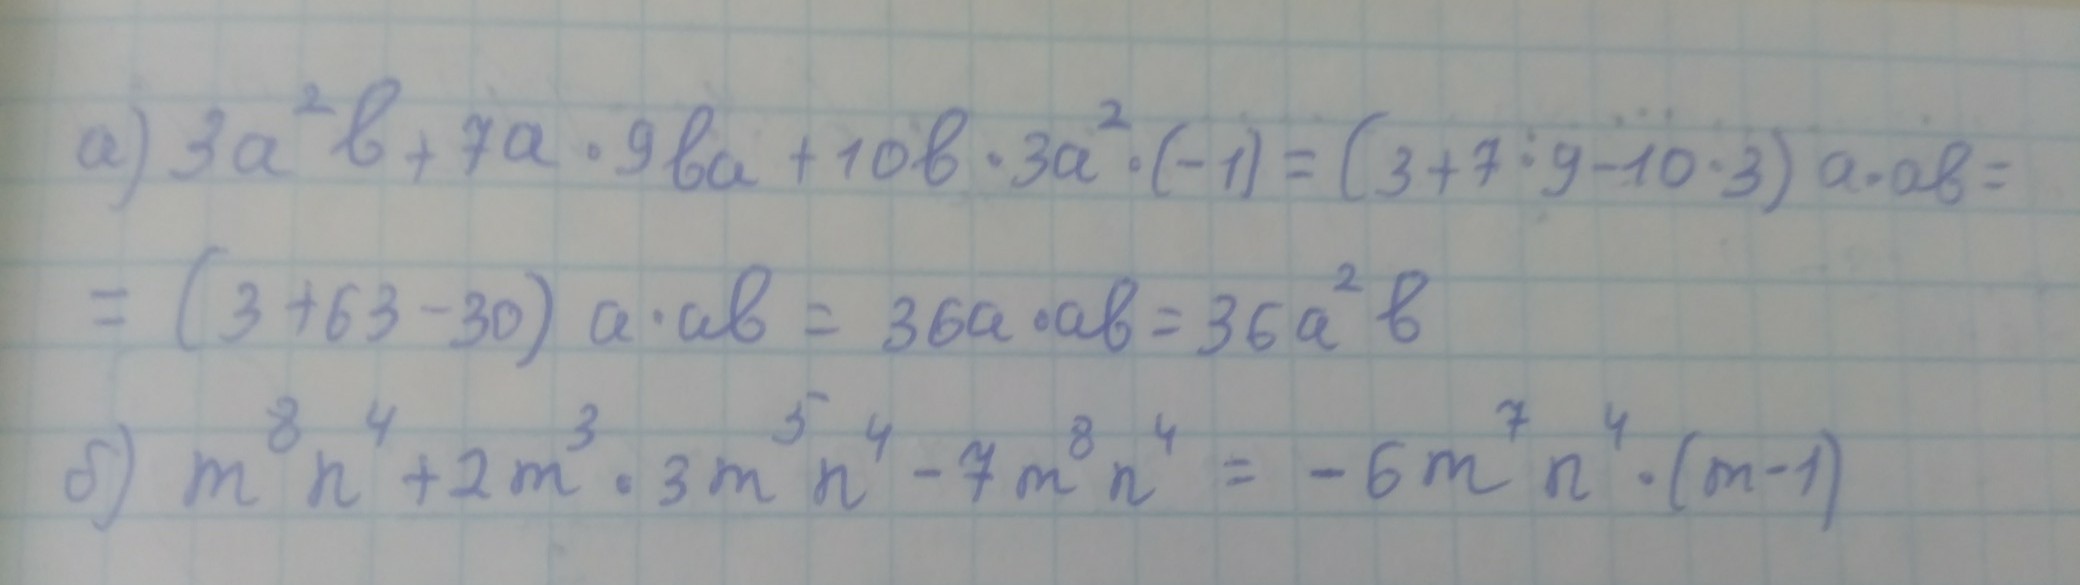 а) 3a²b + 7a · 9ba + 10b · 3a² · (-1) = (3 + 7 · 9 - 10 · 3) a · ab =
= (3 + 63 - 30) a · ab = 36a · ab = 36a² b
б) m⁸n⁴ + 2m³ · 3m⁵n⁴ - 7m⁸n⁴ = - 6m⁷n⁴ · (m - 1)